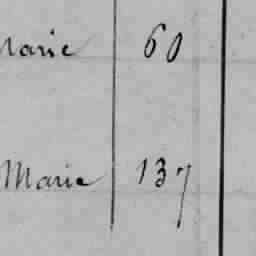 Marie 60
Marie 137